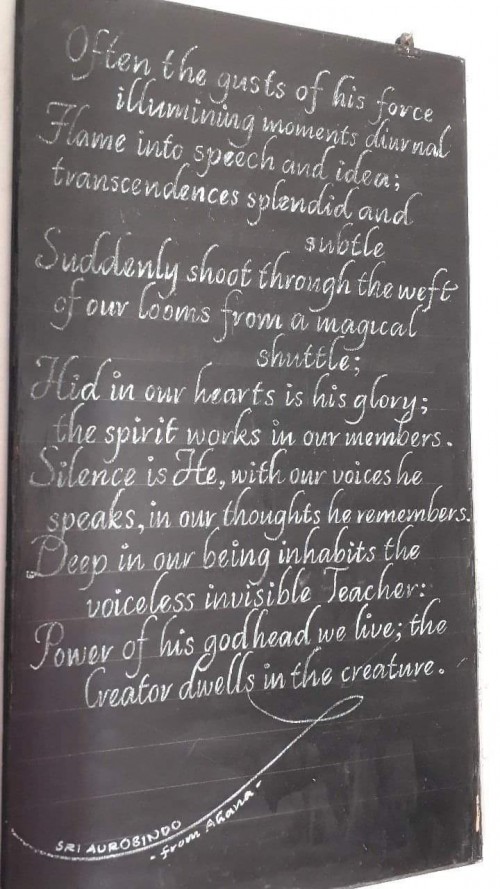 Often the gusts of his force
illumining moments diurnal
Flame into speech and idea;
transcendences splendid and
subtle
Suddenly shoot through the weft
of our looms from a magical
shuttle;
Hid in our hearts is his glory;
the spirit works in our members.
Silence is He, with our voices he
speaks, in our thoughts he remembers.
Deep in our being inhabits the
voiceless invisible Teacher:
Power of his godhead we live; the
Creator dwells in the creature.
SRI AUROBINDO
- from Ahana -